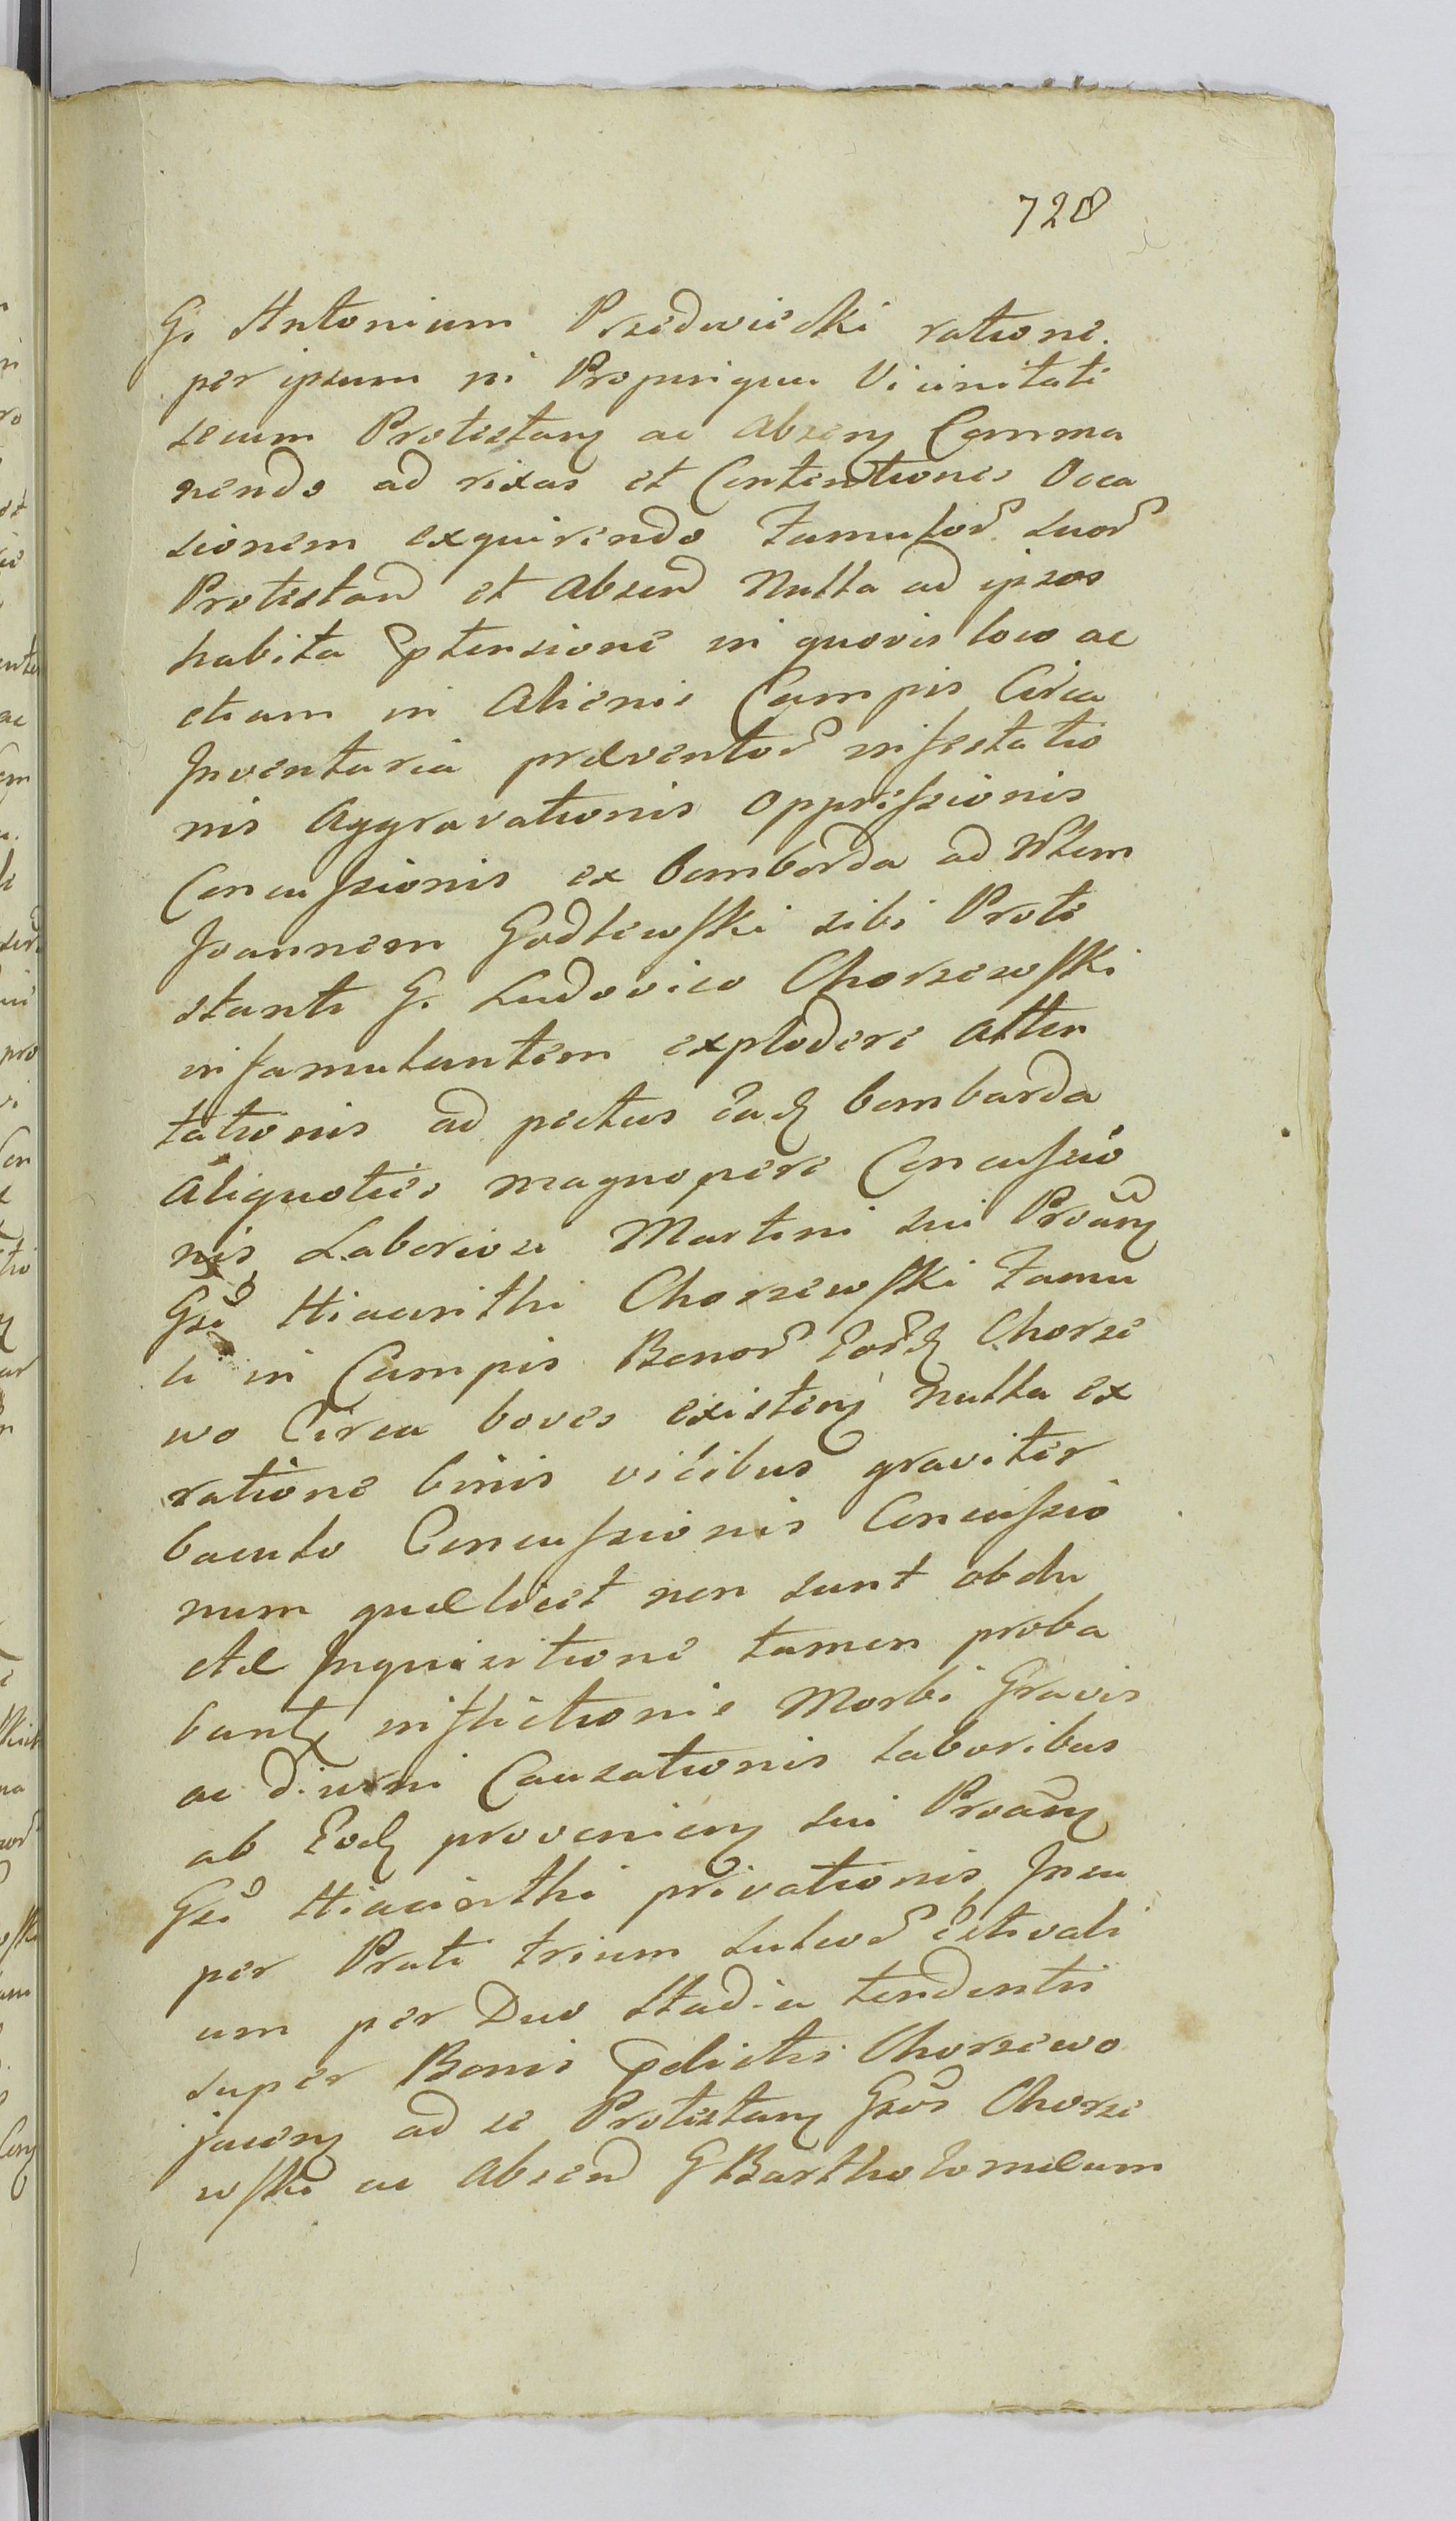 728
G. Antonium Przedwiecki ratione.
per ipsum in Propinqua Vicinitate
secum Protestanꝫ ac Absenꝫ Comma
nendo ad rixas et Contentiones Occa
sionem exquirendo Famulorꝫ suorꝫ
Protestand et Absend Nulla ad ipsos
habita Ptensione in quovis loco ac
etiam in Alienis Campis Circa
Inventaria præventorꝫ infestatio
nis Aggravationis Oppressionis
Concussionis ex bombarda ad Nblem
Joannem Godlewski sibi Prote
stanti G. Ludovico Chorzewski
infamulantem explodere Atten
tationis ad pectus eadꝫ bombarda
Aliquoties magnopere Concussio
nis Laboriosi Martini sui Proanꝫ
Gsi Hiacinthi Chorzewski Famu
li in Campis Bonorꝫ eorꝫdꝫ Chorze
wo Circa boves existenꝫ nulla ex
ratione binis vicibus graviter
baculo Concussionis Concussio
num quæ licet non sunt obdu
ctæ Inquisitione tamen proba
buntꝫ inflictionis Morbi Gravis
ac diurni Causationis laboribus
ab Eodꝫ provenienꝫ sui Proanꝫ
Gsi Hiacinthi privationis Insu
per Prati trium sulcorꝫ estivali
um per Duo Stadia tendentis
super Bonis Pdictis Chorzewo
jacenꝫ ad se Protestanꝫ Gsos Chorze
wski ac Absend G Bartholomæum